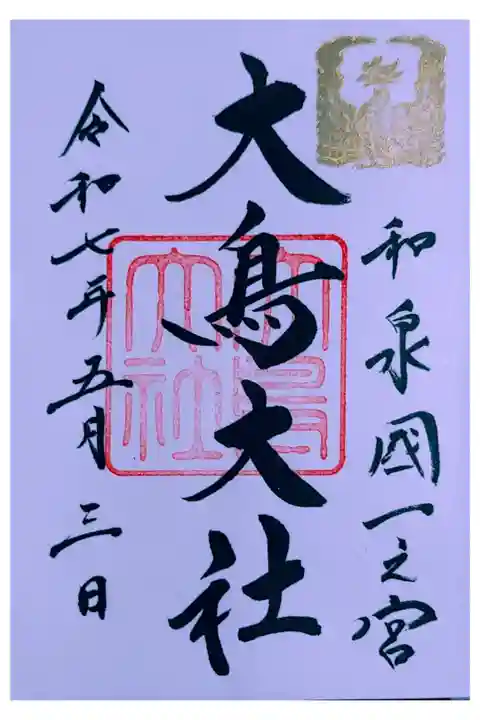 和泉國一之宮
大鳥大社
大鳥大社
令和七年五月三日